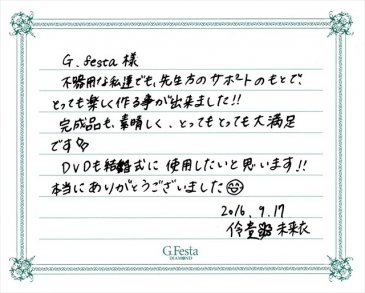 G.festa 様
不器用な私達でも、先生方のサポートのもとで、
とっても楽しく作る事が出来ました!!
完成品も、素晴しく、とってもとっても大満足
です
DVDも結婚式に使用したいと思います!!
本当にありがとうございました
2016.9.17
伶貴 未来衣
G.Festa
DIAMOND